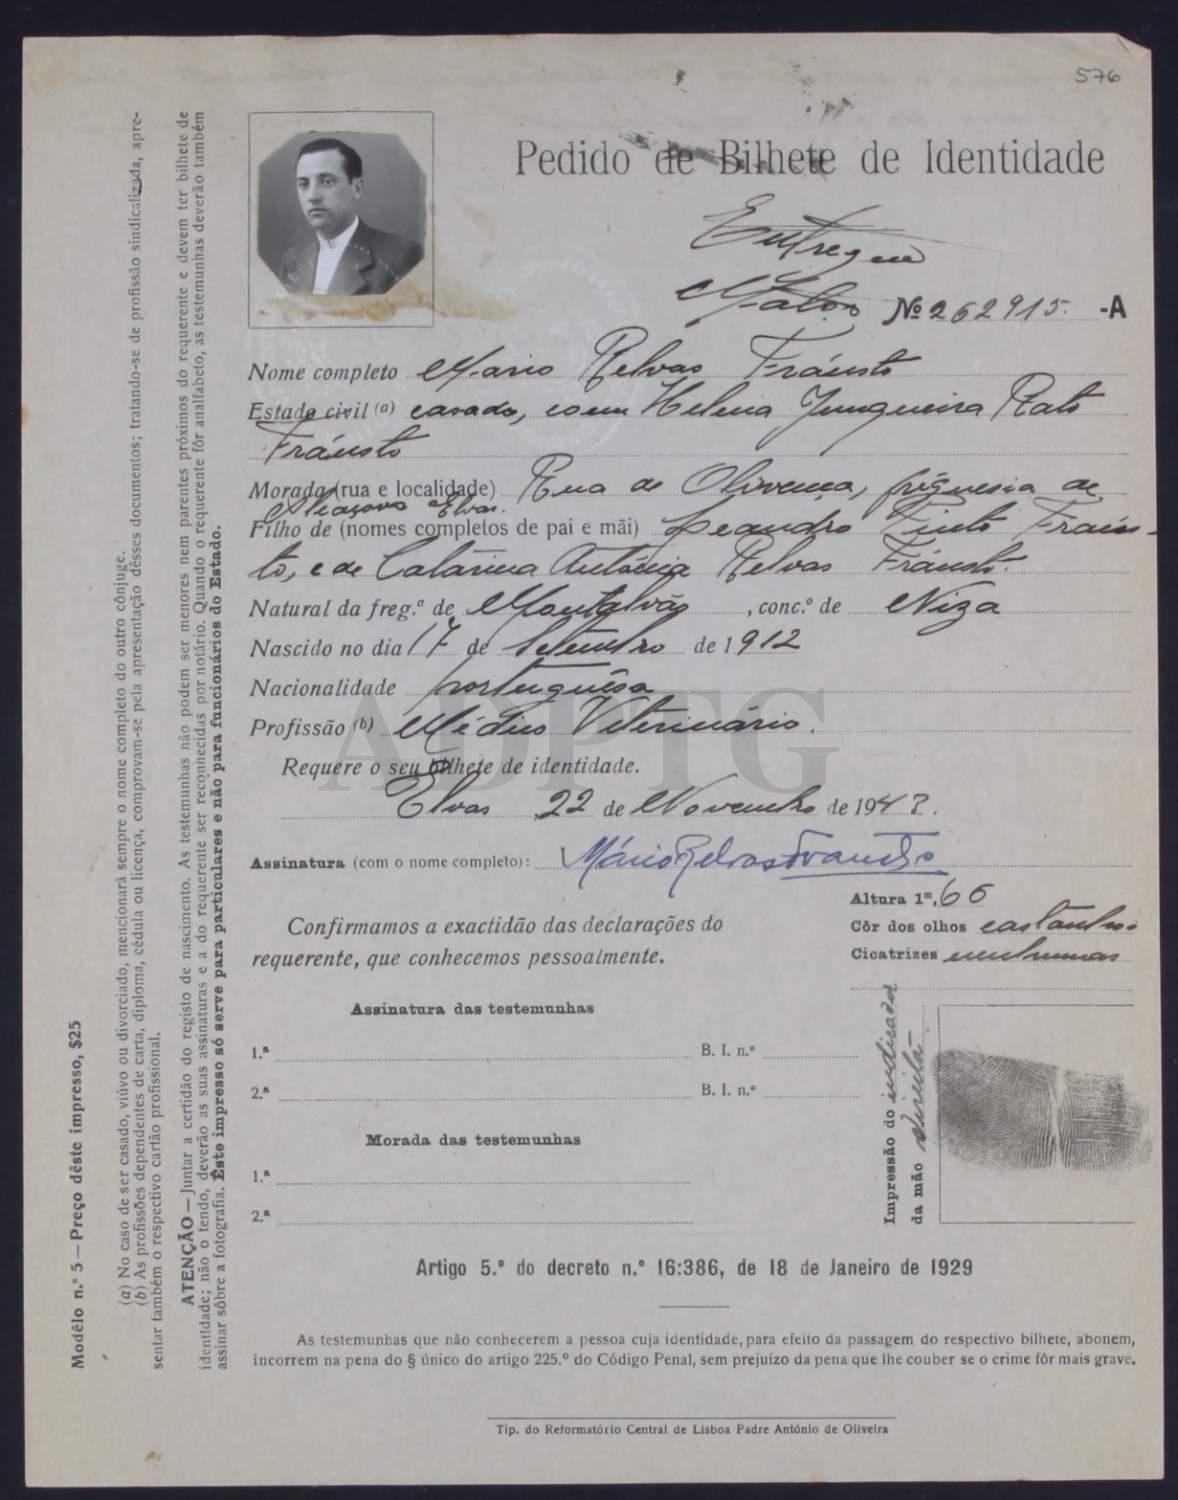 576
Pedido de Bilhete de Identidade
Entregue
Nº 262915 -A
Nome completo Mario Relvas Fráusto
Estado civil (a) casado, com Helena Junqueira Rato
Fráusto
Morada (rua e localidade) Rua de Olivença, fréguesia de
Alcaçova Elvas.
Filho de (nomes completos de pai e mãi) Leandro Pinto Fráus-
to, e de Catarina Antónia Relvas Fráusto.
Natural da freg.ª de Montalvão, conc.º de Niza
Nascido no dia 17 de Setembro de 1912
Nacionalidade portuguêsa
Profissão (b) Médico Veterinário.
Requere o seu bilhete de identidade.
Elvas, 22 de Novembro de 194
Assinatura (com o nome completo): Mário Relvas Frausto
Altura 1m,66
Côr dos olhos castanhos
Cicatrizes nenhumas
Confirmamos a exactidão das declarações do
requerente, que conhecemos pessoalmente.
Assinatura das testemunhas
1.ª B. I. n.º
2.ª B. I. n.º
Morada das testemunhas
1.ª
2.ª
Impressão do indicador
da mão direita
Artigo 5.º do decreto n.º 16:386, de 18 de Janeiro de 1929
As testemunhas que não conhecerem a pessoa cuja identidade, para efeito da passagem do respectivo bilhete, abonem,
incorrem na pena do § único do artigo 225.º do Código Penal, sem prejuízo da pena que lhe couber se o crime fôr mais grave.
Tip. do Reformatório Central de Lisboa Padre António de Oliveira
Modêlo n.º 5 — Preço dêste impresso, $25
(a) No caso de ser casado, viúvo ou divorciado, mencionará sempre o nome completo do outro cônjuge.
(b) As profissões dependentes de carta, diploma, cédula ou licença, comprovam-se pela apresentação dêsses documentos; tratando-se de profissão sindicalizada, apre-
sentar também o respectivo cartão profissional.
ATENÇÃO — Juntar a certidão do registo de nascimento. As testemunhas não podem ser menores nem parentes próximos do requerente e devem ter bilhete de
identidade; não o tendo, deverão as suas assinaturas e a do requerente ser reconhecidas por notário. Quando o requerente fôr analfabeto, as testemunhas deverão também
assinar sôbre a fotografia. Êste impresso só serve para particulares e não para funcionários do Estado.
ADPTG